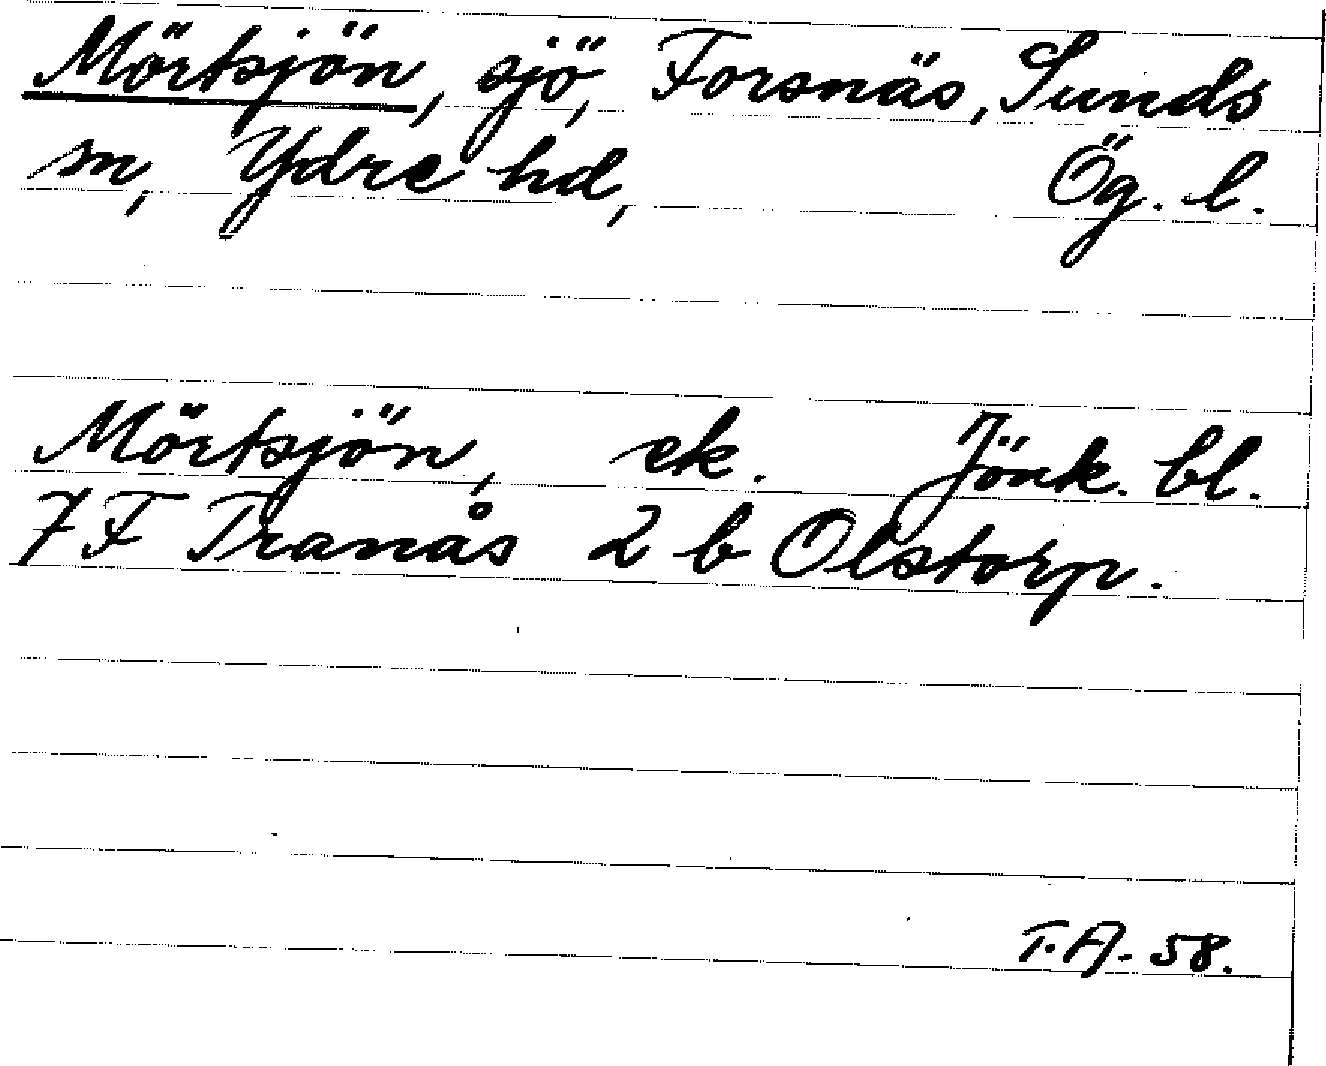 Mörtsjön, sjö, Forsnäs, Sunds
sn, Ydre hd, Ög. l.
Mörtsjön, ek. Jönk. bl.
7 F Tranås 2 b Olstorp.
T.A. 58.